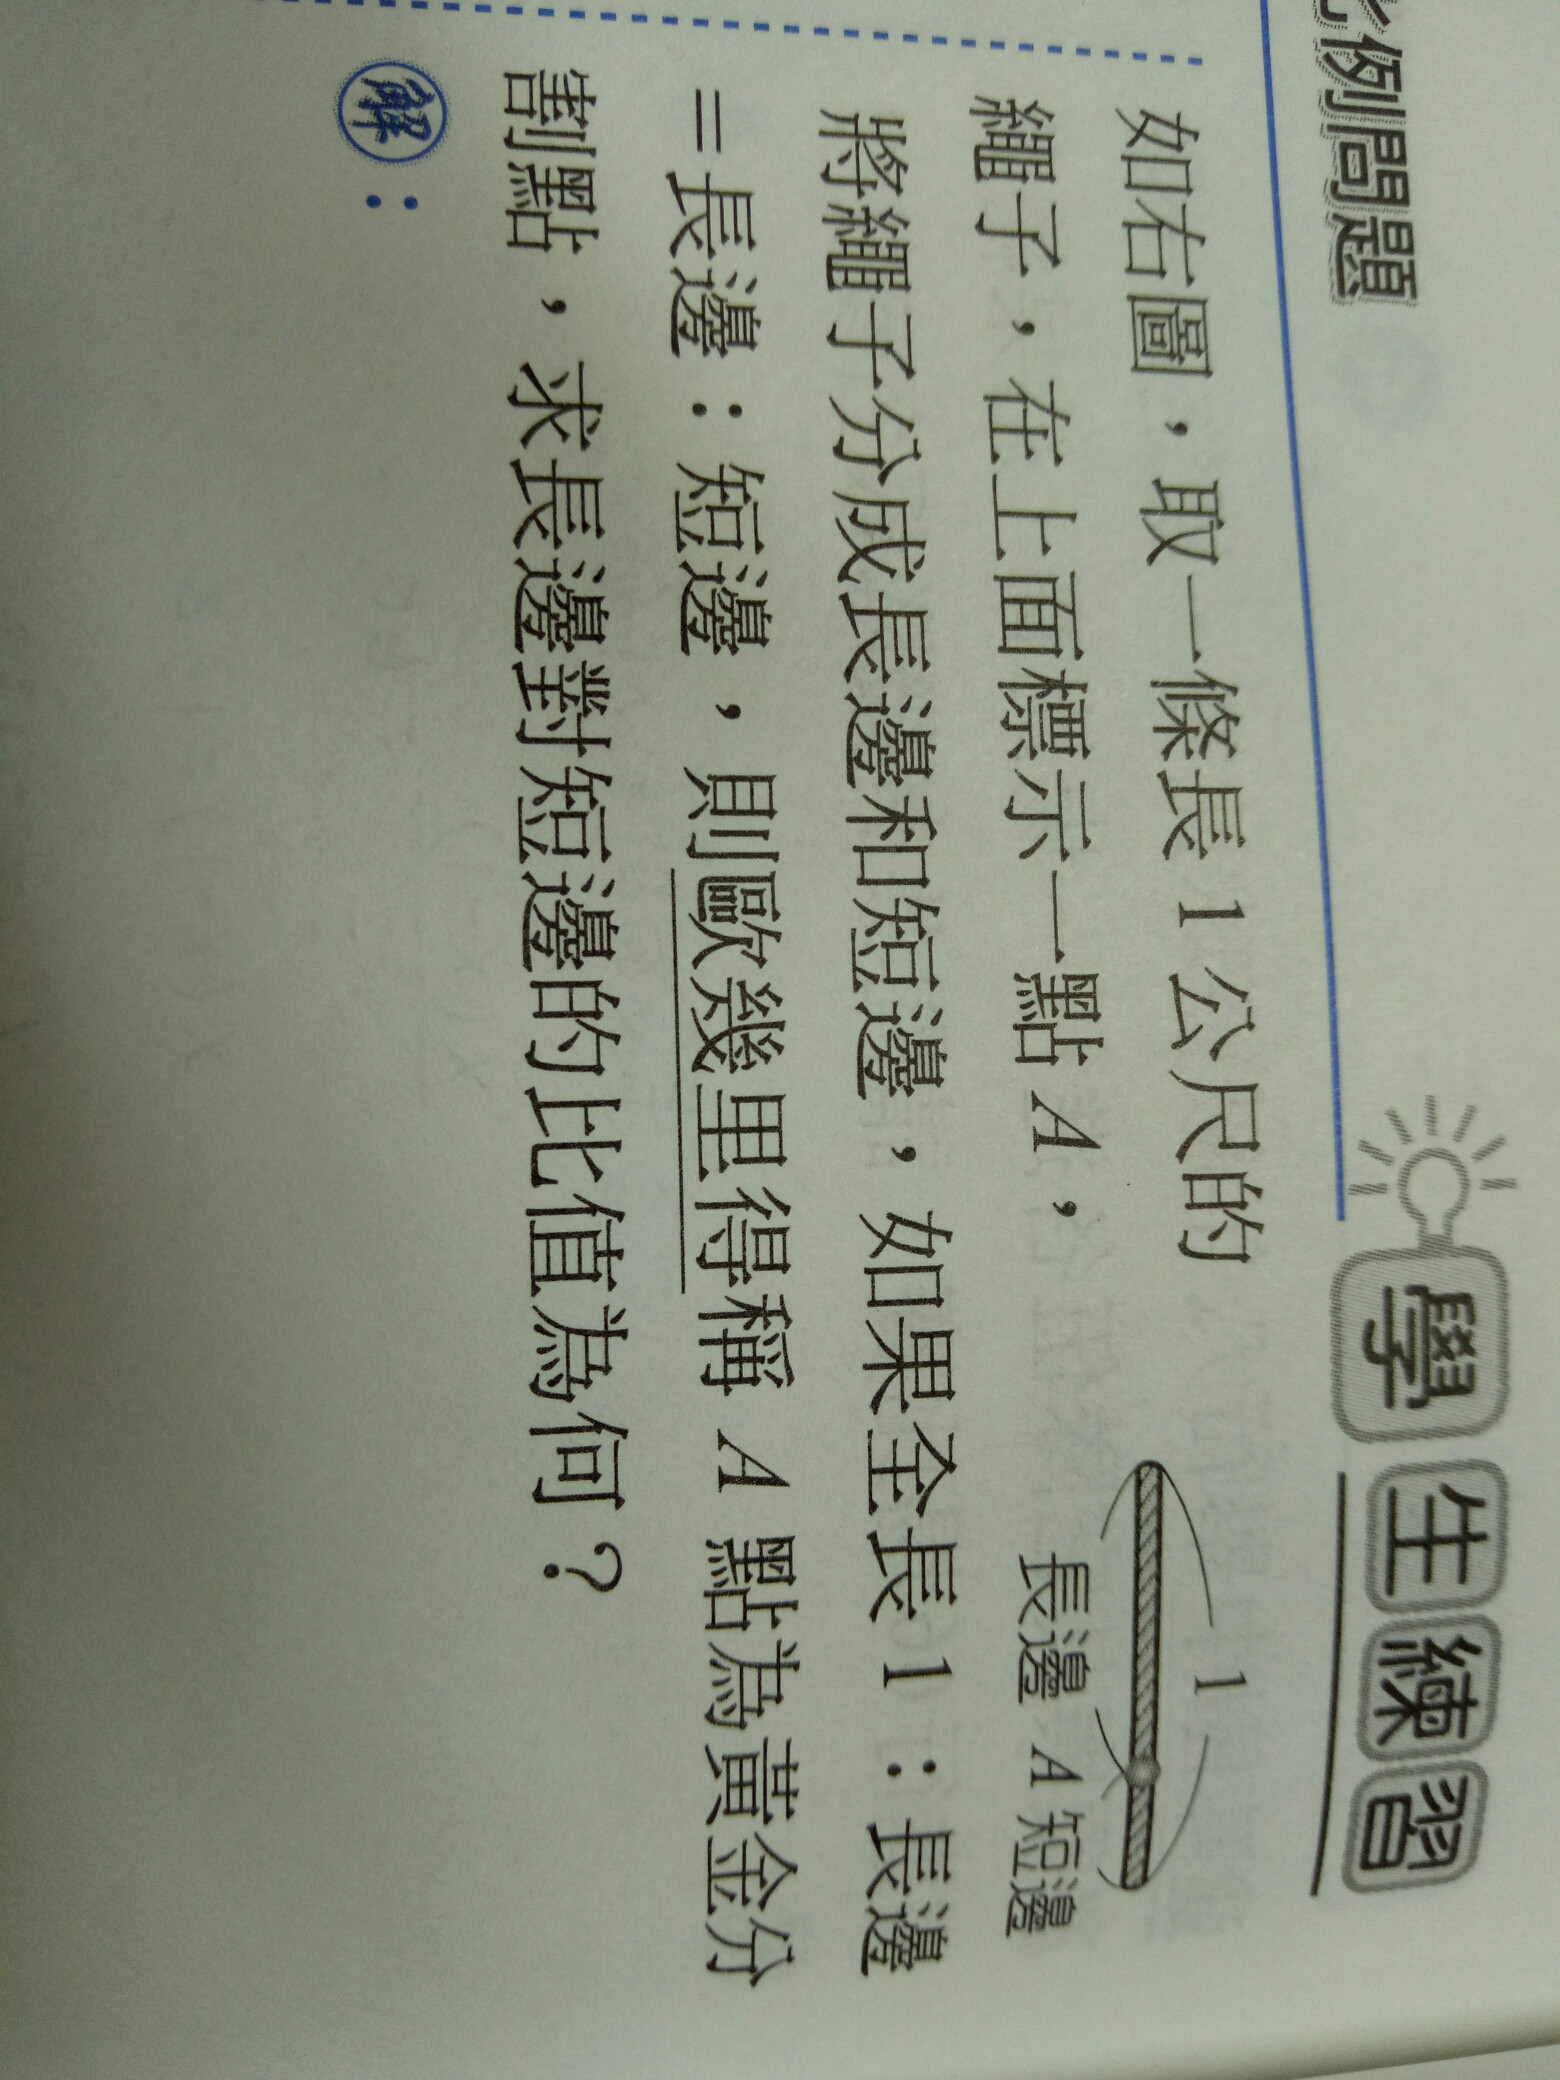 例問題
學生練習
如右圖，取一條長 1 公尺的
繩子，在上面標示一點 A，
將繩子分成長邊和短邊，如果全長 1：長邊
＝長邊：短邊，則歐幾里得稱 A 點為黃金分
割點，求長邊對短邊的比值為何？
1
長邊 A 短邊
解：